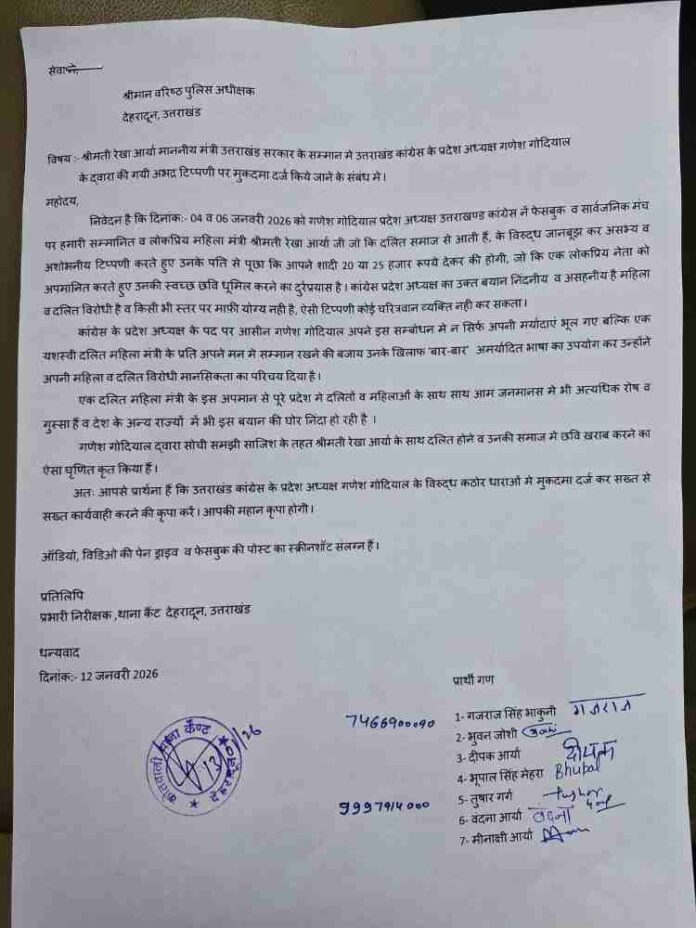 सेवामे,
श्रीमान वरिष्ठ पुलिस अधीक्षक
देहरादून, उत्तराखंड
विषय :- श्रीमती रेखा आर्या माननीय मंत्री उत्तराखंड सरकार के सम्मान मे उत्तराखंड कांग्रेस के प्रदेश अध्यक्ष गणेश गोदियाल
के द्वारा की गयी अभद्र टिप्पणी पर मुकदमा दर्ज किये जाने के संबंध मे।
महोदय,
निवेदन है कि दिनांक:- 04 व 06 जनवरी 2026 को गणेश गोदियाल प्रदेश अध्यक्ष उत्तराखण्ड कांग्रेस ने फेसबुक व सार्वजनिक मंच
पर हमारी सम्मानित व लोकप्रिय महिला मंत्री श्रीमती रेखा आर्या जी जो कि दलित समाज से आती हैं, के विरुद्ध जानबूझ कर असभ्य व
अशोभनीय टिप्पणी करते हुए उनके पति से पूछा कि आपने शादी 20 या 25 हजार रूपये देकर की होगी, जो कि एक लोकप्रिय नेता को
अपमानित करते हुए उनकी स्वच्छ छवि धूमिल करने का दुरंप्रयास है। कांग्रेस प्रदेश अध्यक्ष का उक्त बयान निंदनीय व असहनीय है महिला
व दलित विरोधी है व किसी भी स्तर पर माफ़ी योग्य नही है, ऐसी टिप्पणी कोई चरित्रवान व्यक्ति नही कर सकता।
कांग्रेस के प्रदेश अध्यक्ष के पद पर आसीन गणेश गोदियाल अपने इस सम्बोधन मे न सिर्फ अपनी मर्यादाएं भूल गए बल्कि एक
यशस्वी दलित महिला मंत्री के प्रति अपने मन मे सम्मान रखने की बजाय उनके खिलाफ 'बार-बार' अमर्यादित भाषा का उपयोग कर उन्होंने
अपनी महिला व दलित विरोधी मानसिकता का परिचय दिया है।
एक दलित महिला मंत्री के इस अपमान से पूरे प्रदेश मे दलितों व महिलाओं के साथ साथ आम जनमानस मे भी अत्यधिक रोष व
गुस्सा हैं व देश के अन्य राज्यों में भी इस बयान की घोर निंदा हो रही है ।
गणेश गोदियाल द्वारा सोची समझी साजिश के तहत श्रीमती रेखा आर्या के साथ दलित होने व उनकी समाज मे छवि खराब करने का
ऐसा घृणित कृत किया हैं।
अतः आपसे प्रार्थना हैं कि उत्तराखंड कांग्रेस के प्रदेश अध्यक्ष गणेश गोदियाल के विरुद्ध कठोर धाराओं मे मुकदमा दर्ज कर सख्त से
सख्त कार्यवाही करने की कृपा करें। आपकी महान कृपा होगी।
ऑडियो, विडिओ की पेन ड्राइव व फेसबुक की पोस्ट का स्क्रीनशॉट संलग्न हैं।
प्रतिलिपि
प्रभारी निरीक्षक ,थाना कैंट देहरादून, उत्तराखंड
धन्यवाद
दिनांक:- 12 जनवरी 2026
प्रार्थी गण
7466900090 1- गजराज सिंह भाकुनी गजराज
2- भुवन जोशी
3- दीपक आर्या दीपक
4- भूपाल सिंह मेहरा Bhupal
9997914000 5- तुषार गर्ग Tushar Garg
6- वंदना आर्या वंदना
7- मीनाक्षी आर्या
कोतवाली थाना कैण्ट
देहरादून